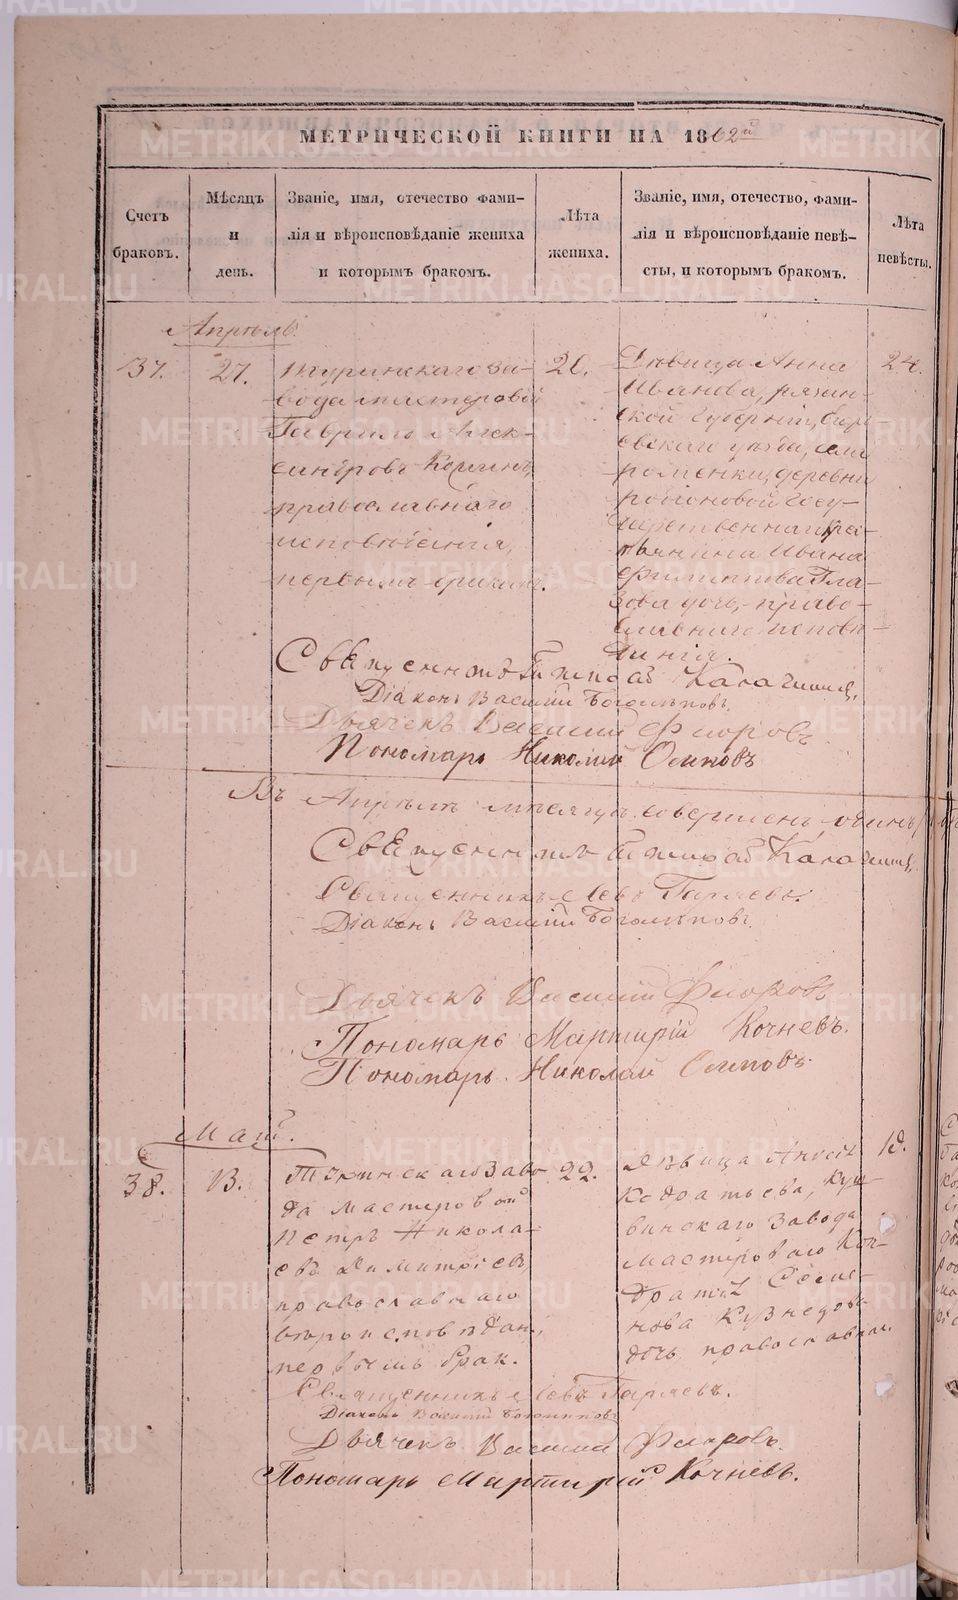 МЕТРИЧЕСКОЙ КНИГИ НА 1862й
Счетъ браковъ.
Мѣсяцъ и день.
Званіе, имя, отечество фами-
лія и вѣроисповѣданіе жениха
и которымъ бракомъ.
Лѣта жениха.
Званіе, имя, отечество, фами-
лія и вѣроисповѣданіе невѣ-
сты, и которымъ бракомъ.
Лѣта невѣсты.
Апрѣль.
37.
27.
Туринскаго за-
вода мастеровой
Гаврило Алек-
сандровъ
православнаго
исповѣданія,
первымъ бракомъ.
20.
Дѣвица Анна
Иванова, рязан-
ской губерніи,
уѣзда,
деревни
Госу-
дарственнаго кре-
стьянина Ивана
Филиппова Гла-
зова дочь, право-
славнаго исповѣ-
данія.
24.
Священникъ
Діаконъ Василій Боголѣповъ.
Дьячекъ Василій Флоровъ
Пономарь Николай Осиповъ
Въ Апрѣлѣ мѣсяцѣ совершенъ одинъ
Священникъ
Священникъ Левъ Гаряевъ.
Діаконъ Василій Боголѣповъ.
Дьячекъ Василій Флоровъ
Пономарь Мартирій Кочневъ.
Пономарь Николай Осиповъ
Маій.
38.
13.
Заво-
да мастеровой
Петръ Никола-
евъ Димитріевъ
православнаго
первымъ брак.
22.
Дѣвица
Куш-
винскаго завода
мастероваго Кон-
дратія
нова Кузнецова
дочь православнаго.
18.
Священникъ Левъ Гаряевъ.
Діаконъ Василій Боголѣповъ
Дьячекъ Василій Флоровъ.
Пономарь Мартирій Кочневъ.
METRIKI.GASO-URAL.RU